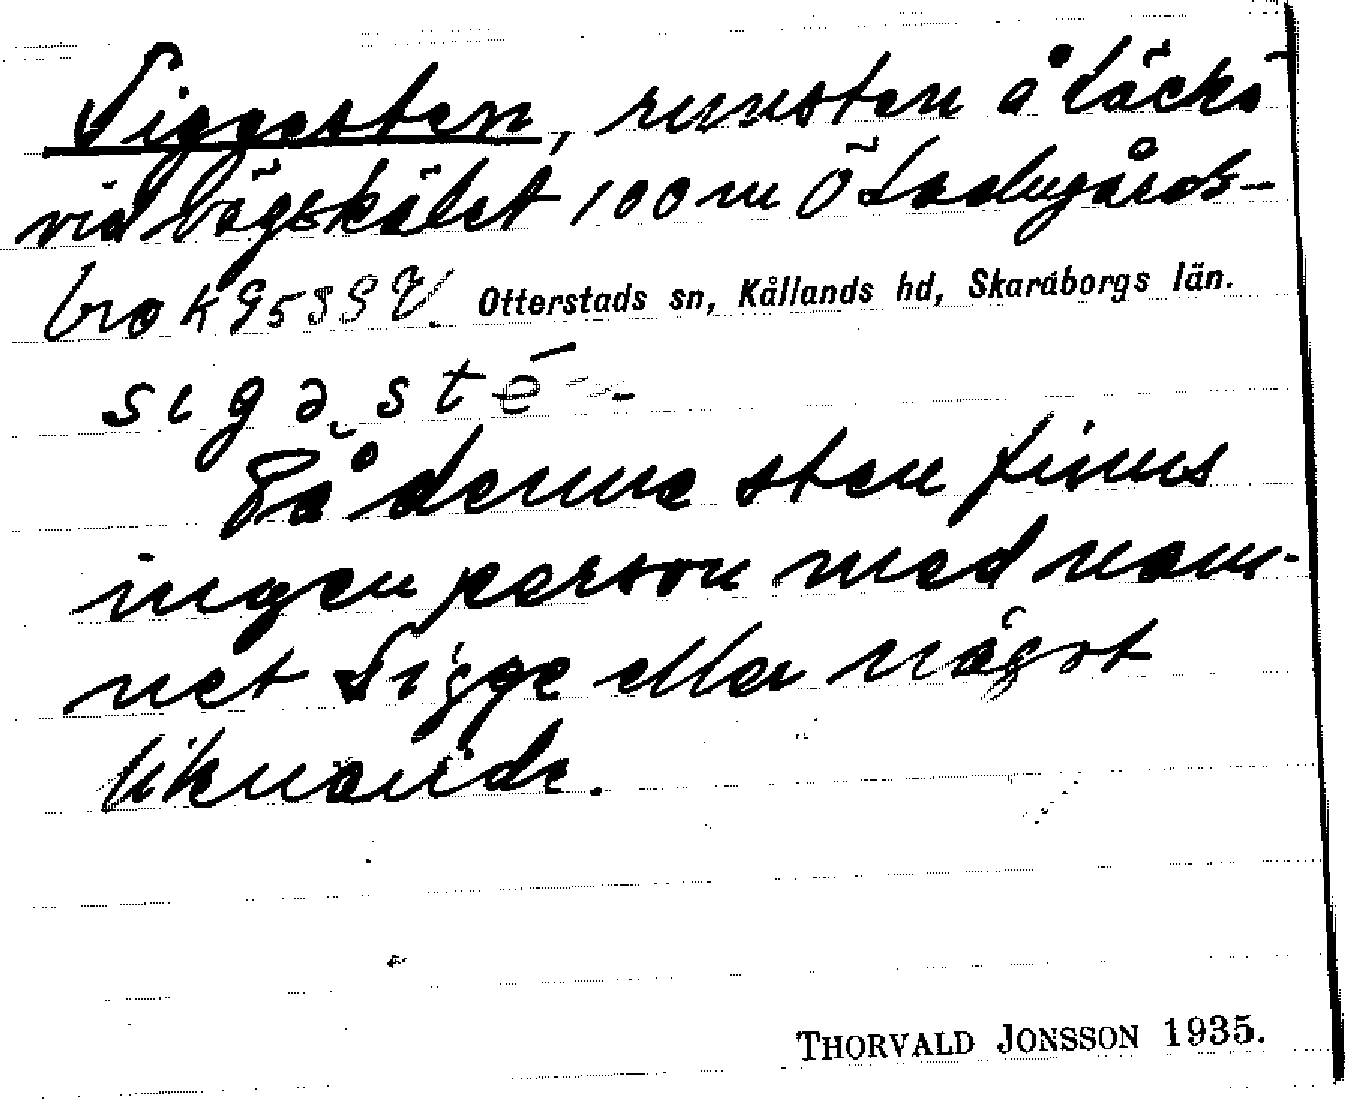 Siggesten, runsten å Läckö
vid vägskälet 100 m Ö Ladugårds-
bro k 9539 V. Otterstads sn, Kållands hd, Skaraborgs län.
På denne sten finns
ingen person med nam-
net Sigge eller något
liknande.
THORVALD JONSSON 1935.